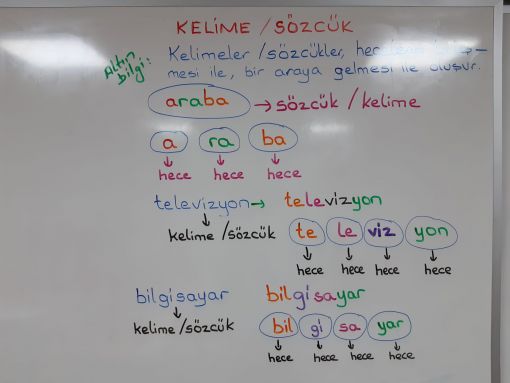 KELİME / SÖZCÜK
Altın bilgi:
Kelimeler / sözcükler,
mesi ile, bir araya gelmesi ile oluşur.
araba → sözcük / kelime
a ra ba
hece hece hece
televizyon → televizyon
kelime / sözcük
te le viz yon
hece hece hece hece
bilgisayar bilgisayar
kelime / sözcük
bil gi sa yar
hece hece hece hece